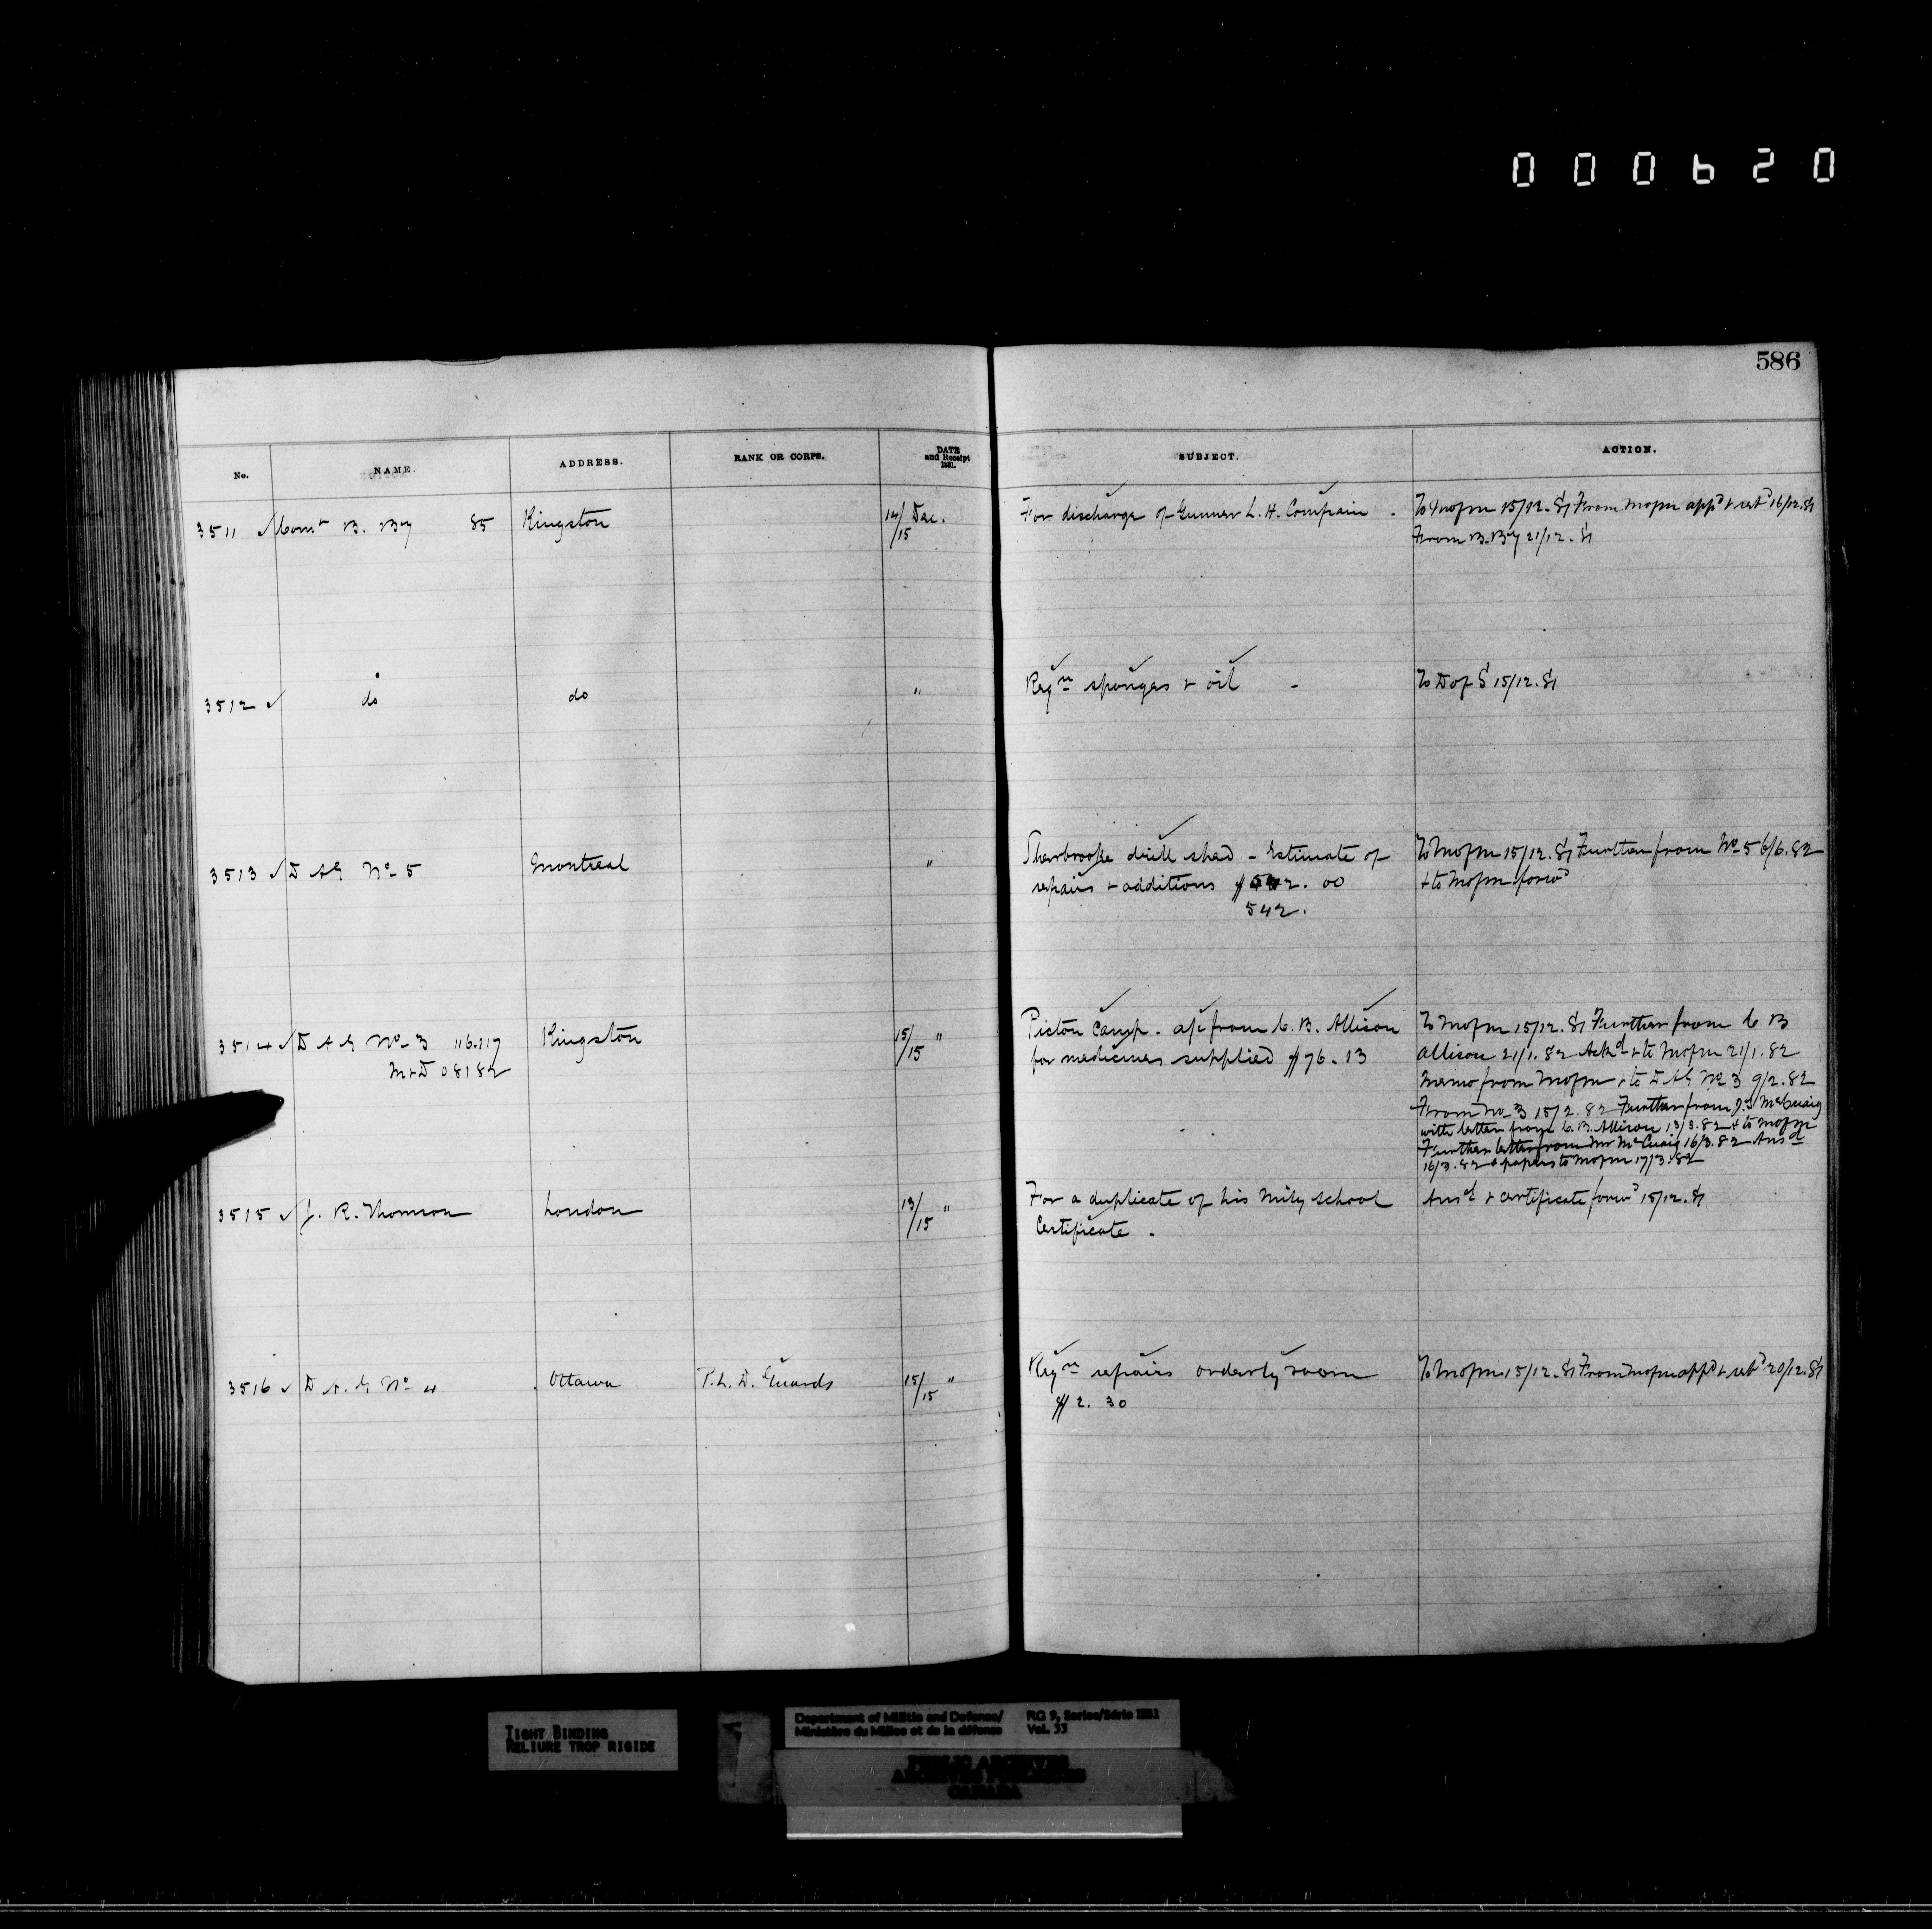 000620
586
No. NAME. ADDRESS. RANK OR CORPS. DATE and Receipt 1881. SUBJECT. ACTION.
3511 ✓ Comt B. By 85 Kingston 14/15 Dec. For discharge of Gunner L. H. Compain - To M of M 15/12.81 From M of M appd & retd 16/12.81
From B. By 21/12.81
3512 ✓ do do " Reqn sponges & oil - To D of S 15/12.81
3513 ✓ D A G No 5 Montreal " Sherbrooke drill shed - Estimate of To M of M 15/12.81 Further from No 5 6/6.82
repairs & additions $542.00 & to M of M forwd
542.
3514 ✓ D A G No 3 116.217 Kingston 15/15 " Picton Camp. a/c from C. B. Allison To M of M 15/12.81 Further from C B
M & D 08182 for medicines supplied $76.13 Allison 21/1.82 Ackd & to M of M 21/1.82
Memo from M of M & to D A G No 3 9/2.82
From No 3 15/2.82 Further from J. S. McCuaig
with letter from C. B. Allison 13/3.82 & to M of M
Further letter from Mr McCuaig 16/3.82 Ansd
16/3.82 & papers to M of M 17/3.82
3515 ✓ J. R. Thomson London 13/15 " For a duplicate of his Mily school Ansd & certificate forwd 15/12.81
Certificate.
3516 ✓ D A G No 4 Ottawa P. L. D. Guards 15/15 " Reqn repairs orderly room To M of M 15/12.81 From M of M appd & retd 20/12.81
$2.30
TIGHT BINDING
RELIURE TROP RIGIDE
Department of Militia and Defence/ RG 9, Series/Série IIB1
Ministère du Milice et de la défense Vol. 33
PUBLIC ARCHIVES
ARCHIVES PUBLIQUES
CANADA